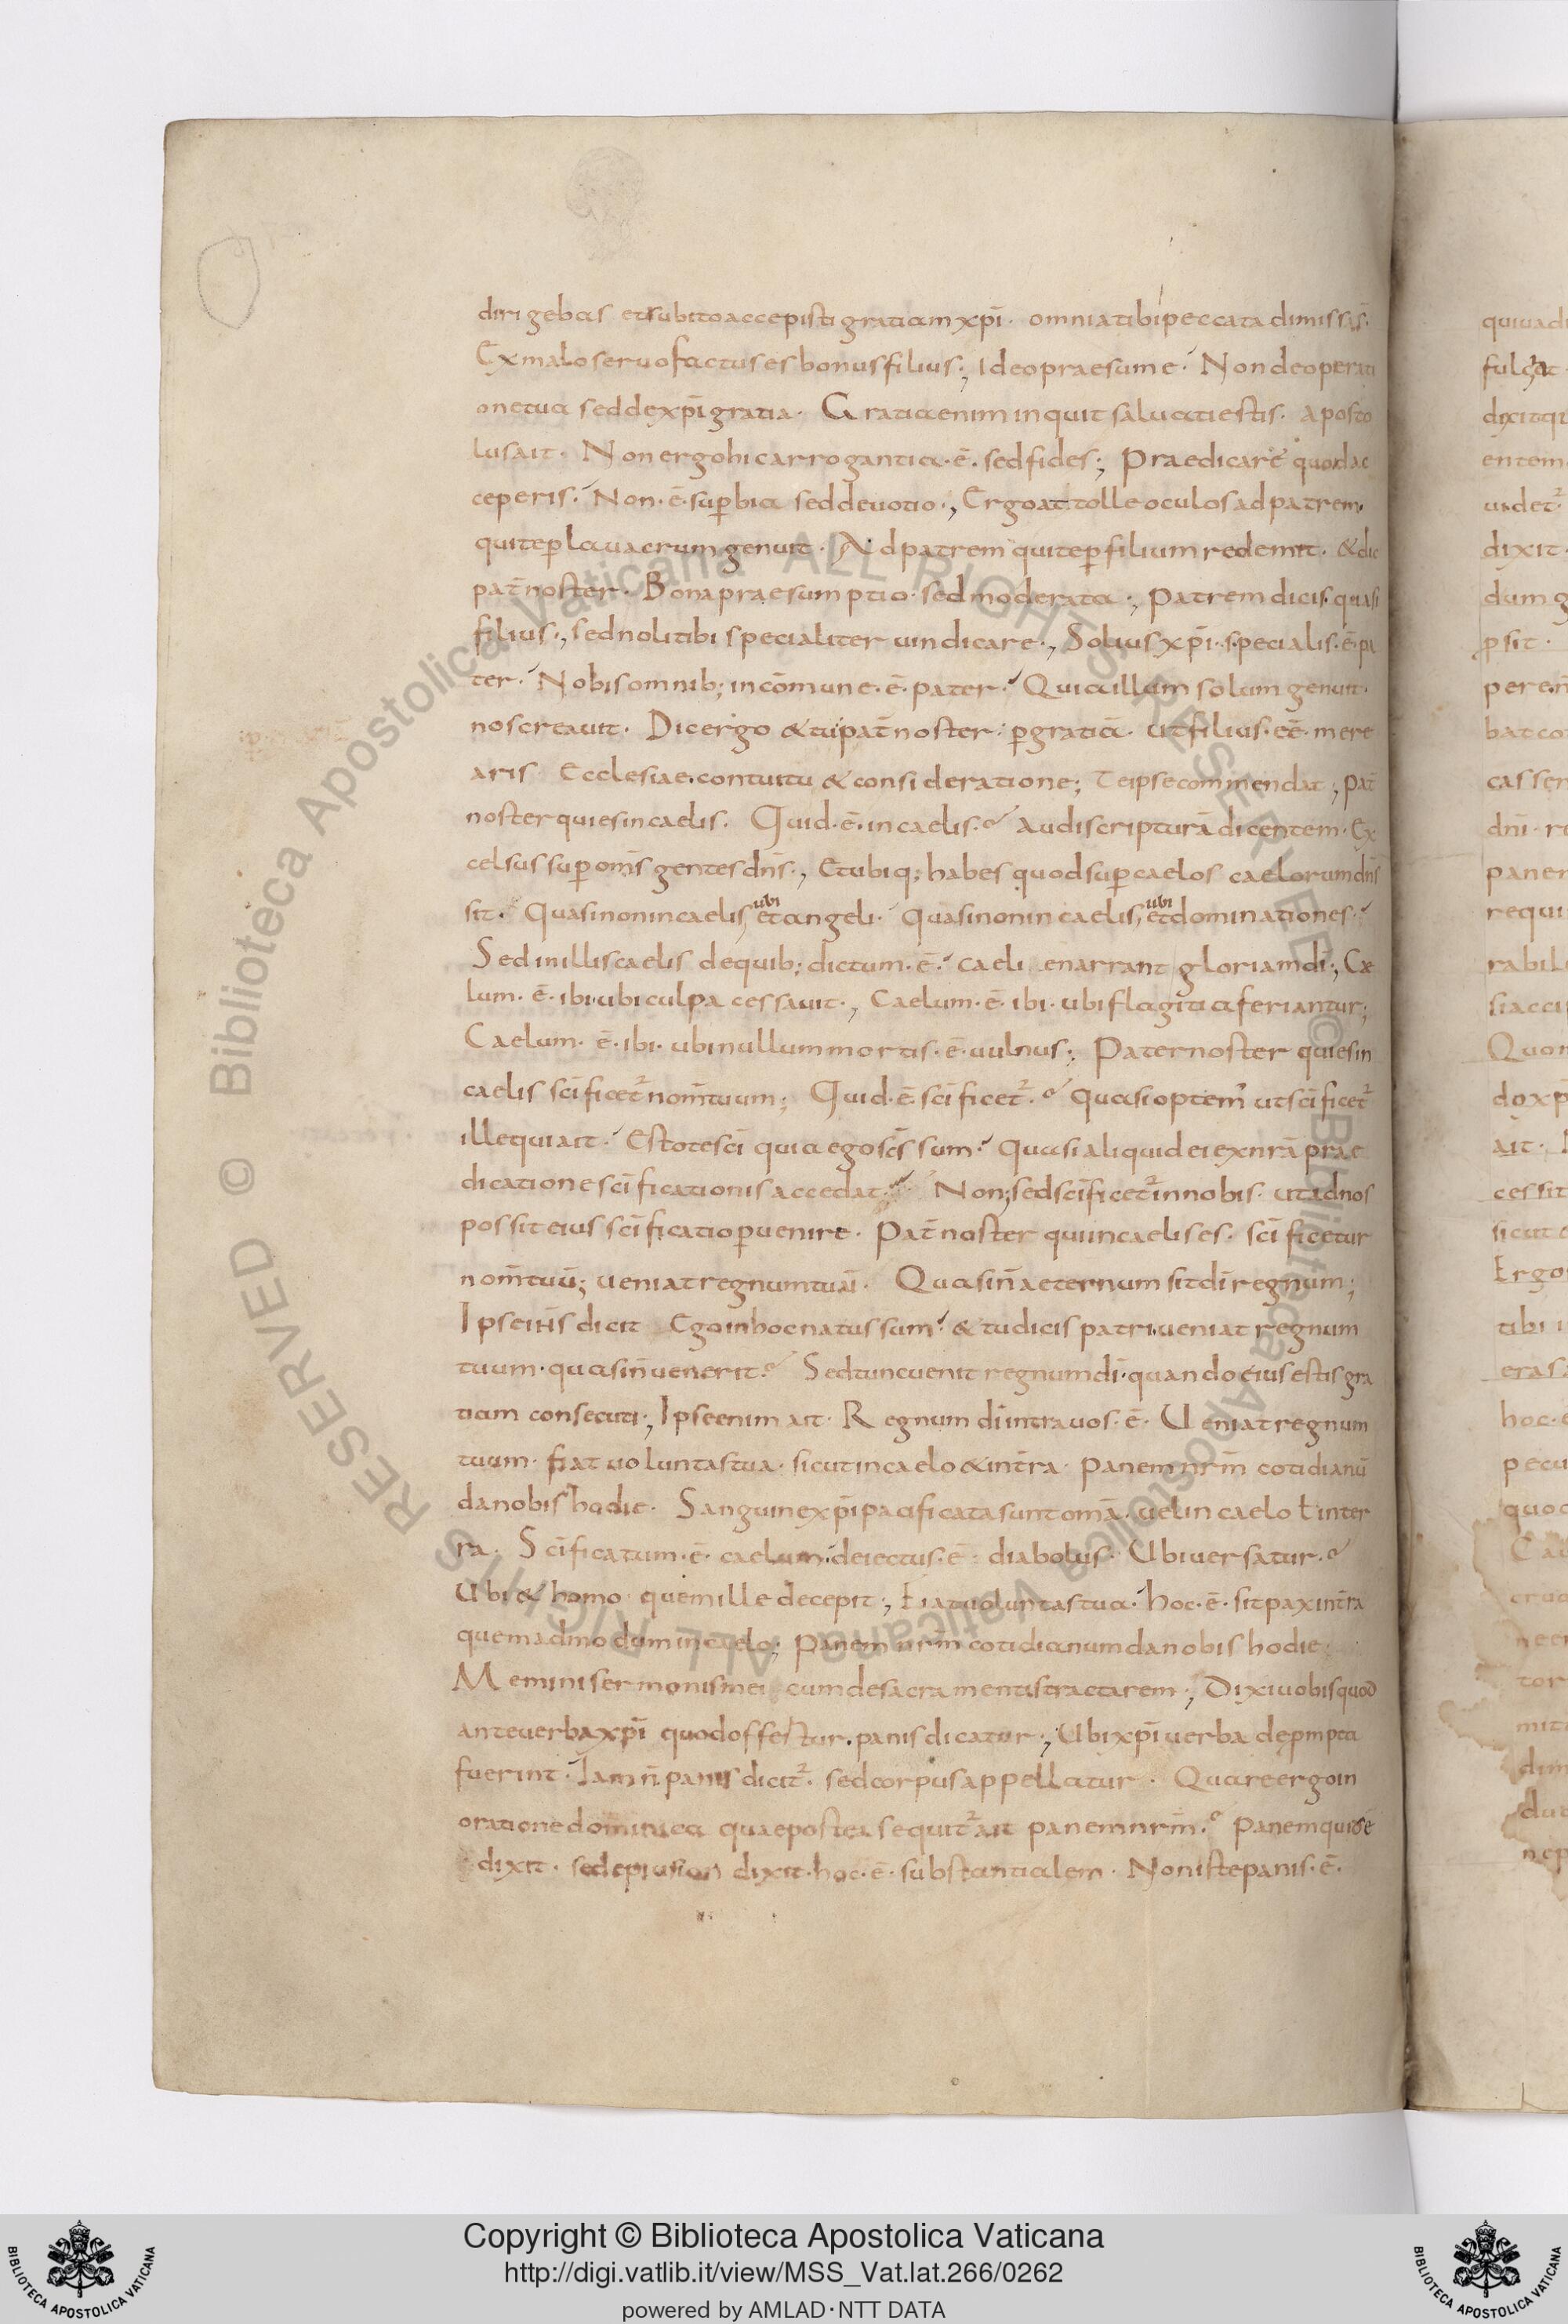 dirigebas et subito accepisti gratiam xp̄i · omnia tibi peccata dimissa s̄ ·
Ex malo seruo factus es bonus filius ·, Ideo praesume · Non de operati
one tua sed de xp̄i gratia · Gratia enim inquit saluati estis · aposto
lus ait · Non ergo hic arrogantia · ē · sed fides ; Praedicare quod ac
ceperis · Non · ē · sup̄bia sed deuotio ·, Ergo attolle oculos ad patrem ·
qui te p̄ lauacrum genuit · Ad patrem qui te p̄ filium redemit · & dic
pat̄ noster · Bona praesumptio · sed moderata ·, patrem dicis · quasi
filius ·, sed noli tibi specialiter uindicare ·, Solius xp̄i · specialis · ē · pa
ter · Nobis omnib; in cōmune · ē · pater · Quia illum solum genuit ·
nos creauit · Dic ergo & tu pat̄ noster · p̄ gratiā · ut filius · eē · mere
aris Ecclesiae contuitu & consideratione ; Te ipse commendat , pat̄
noster qui es in caelis · Quid · ē · in caelis · Audi scripturā dicentem · Ex
celsus sup̄ om̄s gentes dn̄s ·, Et ubiq; habes quod sup̄ caelos caelorum dn̄s
sit · Quasi non in caelis, ubi et angeli · Quasi non in caelis, ubi et dominationes ·
Sed in illis caelis de quib; dictum · ē · caeli enarrant gloriam dī ·, Cae
lum · ē · ibi · ubi culpa cessauit ·, Caelum · ē · ibi · ubi flagitia feriantur ;
Caelum · ē · ibi · ubi nullum mortis · ē · uulnus ; Pater noster qui es in
caelis sc̄ificet² nom̄ tuum ; Quid · ē sc̄ificet² · Quasi optem' ut sc̄ificet²
ille qui ait · Estote sc̄i quia ego sc̄s sum · Quasi aliquid ei ex nrā prae
dicatione sc̄ificationis accedat · Non; sed sc̄ificet² in nobis · ut ad nos
possit eius sc̄ificatio p̄uenire · Pat̄ noster qui in caelis es · sc̄ificetur
nom̄ tuū ; ueniat regnum tuū · Quasi n̄ aeternum sit dī regnum ;
Ipse ih̄s dicit Ego in hoc natus sum · & tu dicis patri · ueniat regnum
tuum · quasi n̄ uenerit · Sed tunc uenit regnum dī · quando eius estis gra
tiam consecuti ·, Ipse enim ait · Regnum dī intra uos · ē · Ueniat regnum
tuum · fiat uoluntas tua · sicut in caelo & in t̄ra · panem nr̄m cotidianū
da nobis hodie · Sanguine xp̄i pacificata sunt omā · uel in caelo ł in ter
ra · Sc̄ificatum · ē · caelum · deiectus · ē · diabolus · Ubi uersatur ·
Ubi & homo quem ille decepit ·, Fiat uoluntas tua · hoc · ē · sit pax in t̄ra
quemadmodum in caelo ; Panem nr̄m cotidianum da nobis hodie
Memini sermonis mei cum de sacramentis tractarem ·, Dixi uobis quod
ante uerba xp̄i quod offertur · panis dicatur ·, Ubi xp̄i uerba deprompta
fuerint · Iam n̄ panis dicit² · sed corpus appellatur · Quare ergo in
oratione dominica quae postea sequit² ait panem nr̄m · Panem quidē
dixit · sed epiusion dixit · hoc · ē · substantialem · Non iste panis · ē ·
Copyright © Biblioteca Apostolica Vaticana
http://digi.vatlib.it/view/MSS_Vat.lat.266/0262
powered by AMLAD·NTT DATA